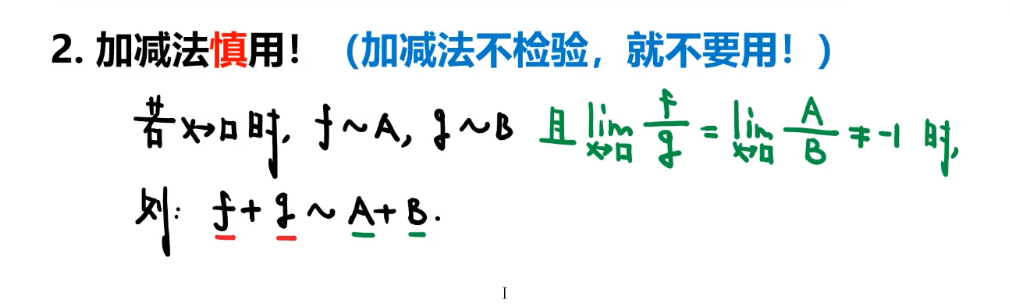 2. 加减法慎用！（加减法不检验，就不要用！）
若 x→□ 时, f ~ A, g ~ B 且 lim_{x→□} f/g = lim_{x→□} A/B ≠ -1 时,
则: f + g ~ A + B.